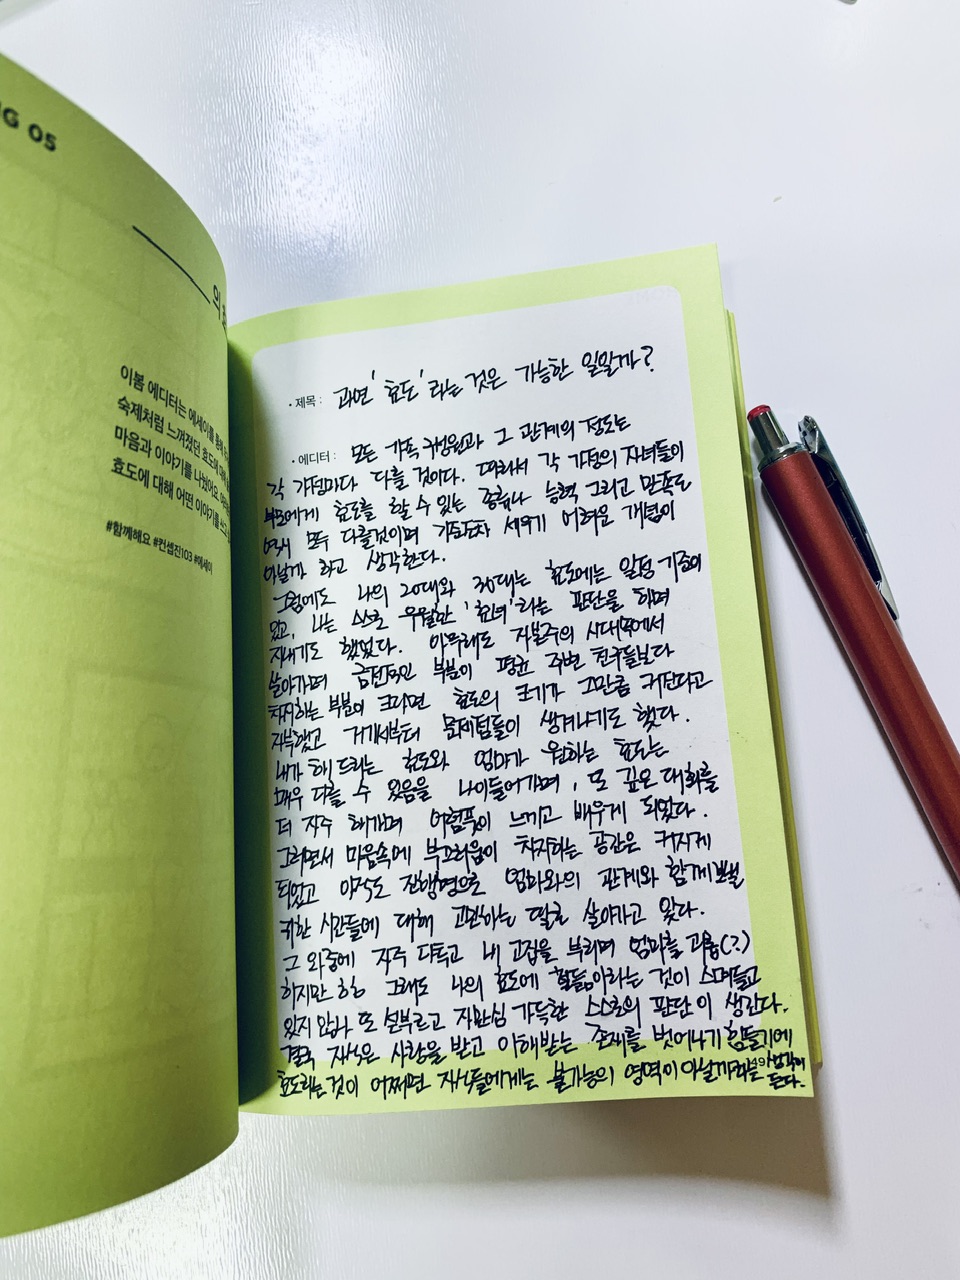 NG 05
의
이봄 에디터는 에세이를 통해
숙제처럼 느껴졌던 효도에 대해
마음과 이야기를 나눴어요.
효도에 대해 어떤 이야기를
#함께해요 #컨셉진103 #에세이
• 제목 : 과연 '효도'라는 것은 가능한 일일까?
• 에디터 : 모든 가족 구성원과 그 관계의 정도는
각 가정마다 다를 것이다. 따라서 각 가정의 자녀들이
부모에게 효도를 할 수 있는 종류나 능력 그리고 만족도
역시 모두 다를것이며 기준조차 세우기 어려운 개념이
아닐까 하고 생각한다.
그럼에도 나의 20대와 30대는 효도에는 일정 기준이
있고, 나는 스스로 우월한 '효녀'라는 판단을 하며
지내기도 했었다. 아무래도 자본주의 시대속에서
살아가며 금전적인 부분이 평균 주변 친구들보다
차지하는 부분이 크다면 효도의 크기가 그만큼 커진다고
자부했고 거기서부터 문제점들이 생겨나기도 했다.
내가 해 드리는 효도와 엄마가 원하는 효도는
매우 다를 수 있음을 나이들어가며, 또 깊은 대화를
더 자주 해가며 어렴풋이 느끼고 배우게 되었다.
그러면서 마음속에 부끄러움이 차지하는 공간은 커지게
되었고 아직도 진행형으로 엄마와의 관계와 함께 보낼
귀한 시간들에 대해 고민하는 딸로 살아가고 있다.
그 와중에 자주 다투고 내 고집을 부리며 엄마를 괴롭(?)
하지만 그래도 나의 효도에 힘듦이라는 것이 스며들고
있지 않나 또 섣부르고 자만심 가득한 스스로의 판단이 생긴다.
결국 자식은 사랑을 받고 이해받는 존재를 벗어나기 힘들기에
효도라는것이 어쩌면 자식들에게는 불가능의 영역이 아닐까라는 생각이
49
든다.